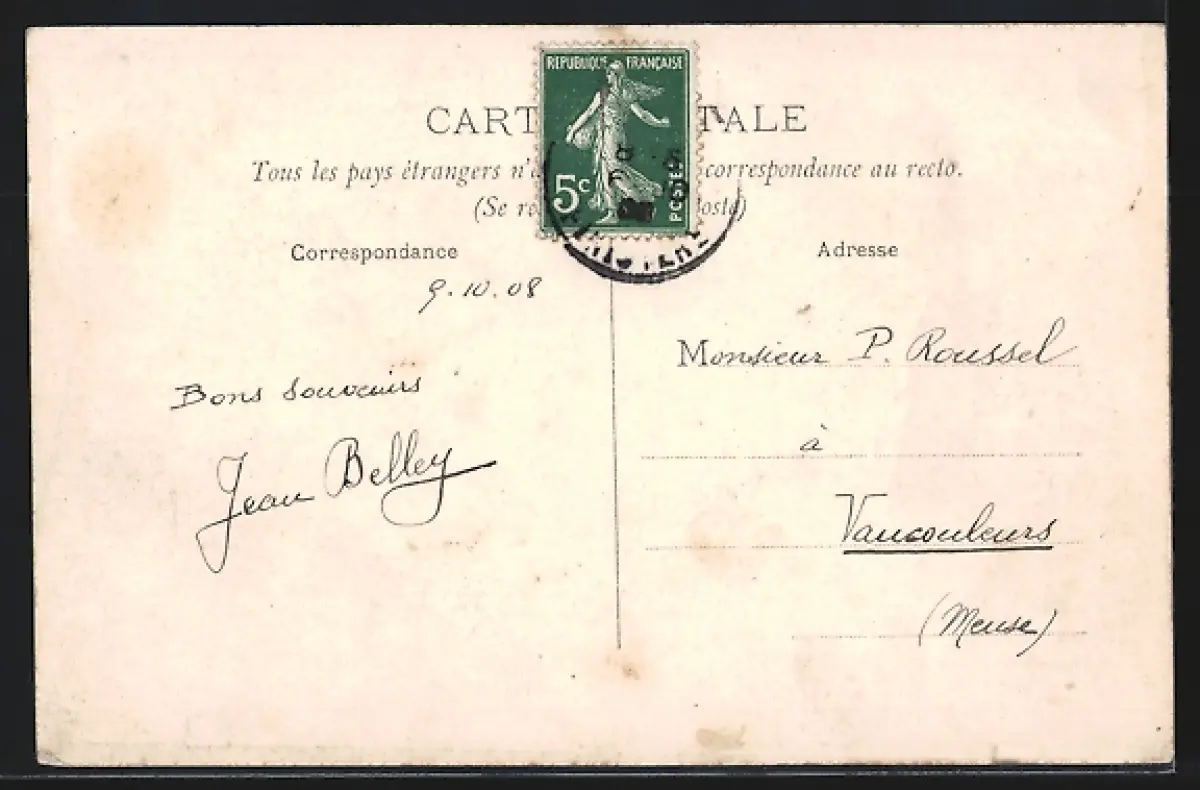 REPUBLIQUE FRANÇAISE
5c
POSTES
CART TALE
Tous les pays étrangers n'a correspondance au recto.
(Se re Poste)
Correspondance
Adresse
9.10.08
Monsieur P. Roussel
Bons souvenirs
à
Jean Belley
Vaucouleurs
(Meuse)